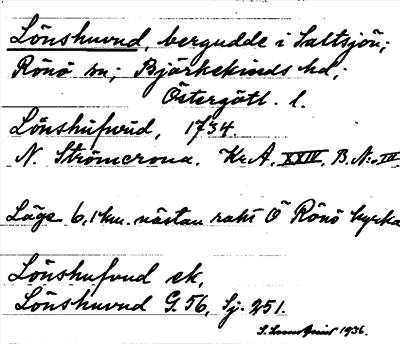 Lönshuvud, bergudde i Saltsjön;
Rönö sn; Björkekinds hd,
Östergötl. l.
Lönshufwud, 1734.
N. Strömcrona. Kr.A. XXIV, B. N:o
Läge 6,1 km. nästan rakt Ö Rönö kyrka
Lönshufvud ek,
Lönshuvud G. 56, Sj. 251.
1936.